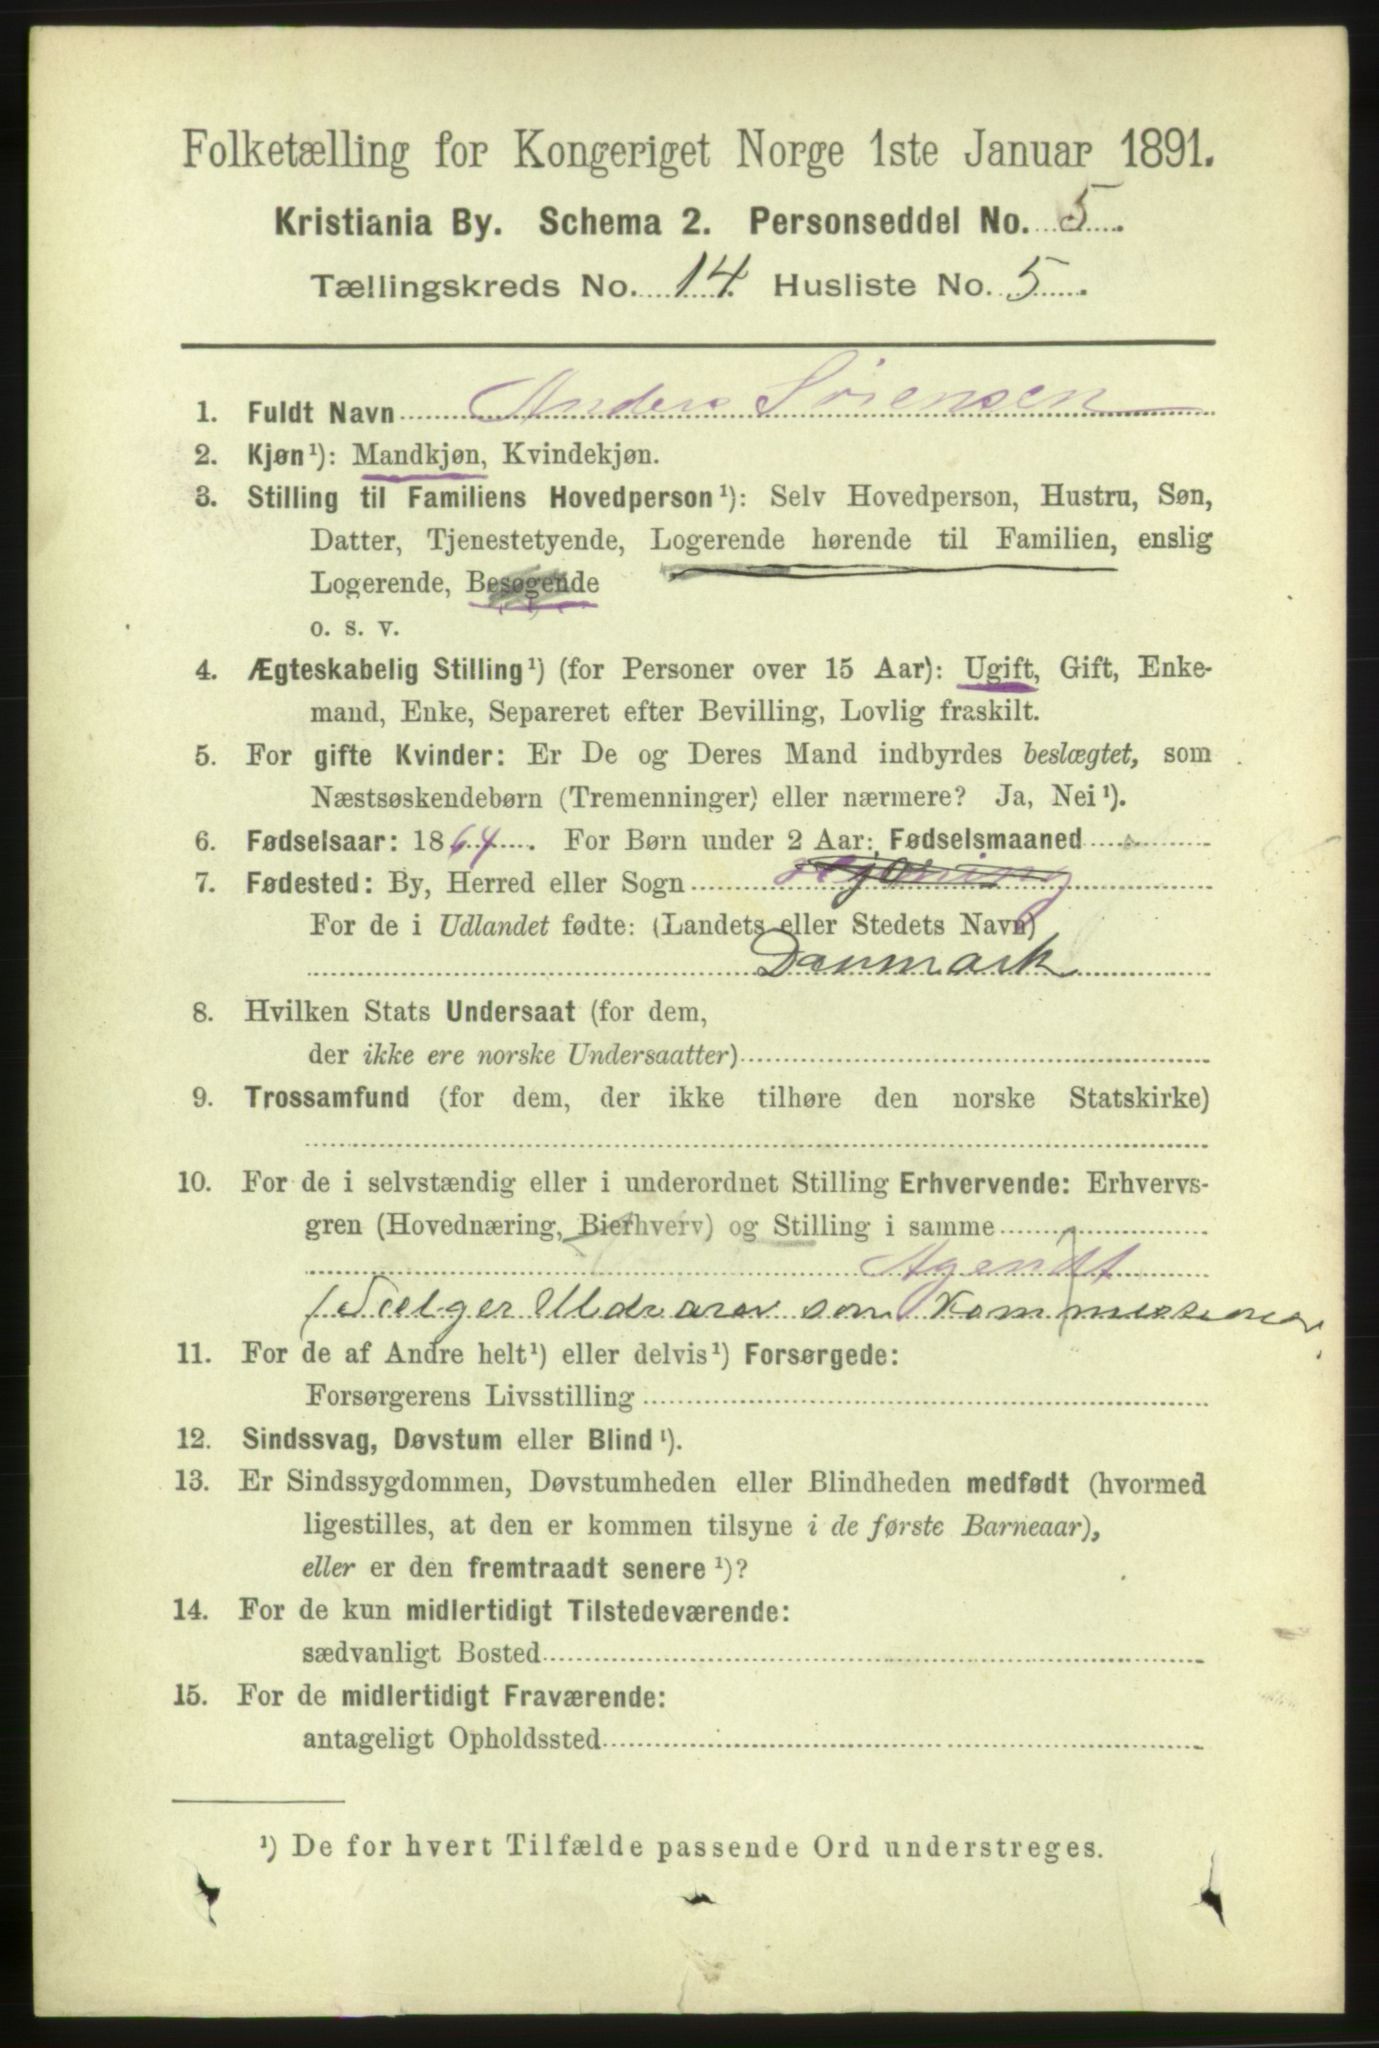 Folketælling for Kongeriget Norge 1ste Januar 1891.
Kristiania By. Schema 2. Personseddel No. 5.
Tællingskreds No. 14. Husliste No. 5.
1. Fuldt Navn Anders Sörensen
2. Kjøn¹): Mandkjøn, Kvindekjøn.
3. Stilling til Familiens Hovedperson¹): Selv Hovedperson, Hustru, Søn,
Datter, Tjenestetyende, Logerende hørende til Familien, enslig
Logerende, Besøgende
o. s. v.
4. Ægteskabelig Stilling¹) (for Personer over 15 Aar): Ugift, Gift, Enke-
mand, Enke, Separeret efter Bevilling, Lovlig fraskilt.
5. For gifte Kvinder: Er De og Deres Mand indbyrdes beslægtet, som
Næstsøskendebørn (Tremenninger) eller nærmere? Ja, Nei¹).
6. Fødselsaar: 1864. For Børn under 2 Aar: Fødselsmaaned
7. Fødested: By, Herred eller Sogn Hjøring
For de i Udlandet fødte: (Landets eller Stedets Navn)
Danmark
8. Hvilken Stats Undersaat (for dem,
der ikke ere norske Undersaatter)
9. Trossamfund (for dem, der ikke tilhøre den norske Statskirke)
10. For de i selvstændig eller i underordnet Stilling Erhvervende: Erhvervs-
gren (Hovednæring, Bierhverv) og Stilling i samme
Agendt
(Sælger Uldvarer som Kommissionær
11. For de af Andre helt¹) eller delvis¹) Forsørgede:
Forsørgerens Livsstilling
12. Sindssvag, Døvstum eller Blind¹).
13. Er Sindssygdommen, Døvstumheden eller Blindheden medfødt (hvormed
ligestilles, at den er kommen tilsyne i de første Barneaar),
eller er den fremtraadt senere¹)?
14. For de kun midlertidigt Tilstedeværende:
sædvanligt Bosted
15. For de midlertidigt Fraværende:
antageligt Opholdssted
¹) De for hvert Tilfælde passende Ord understreges.